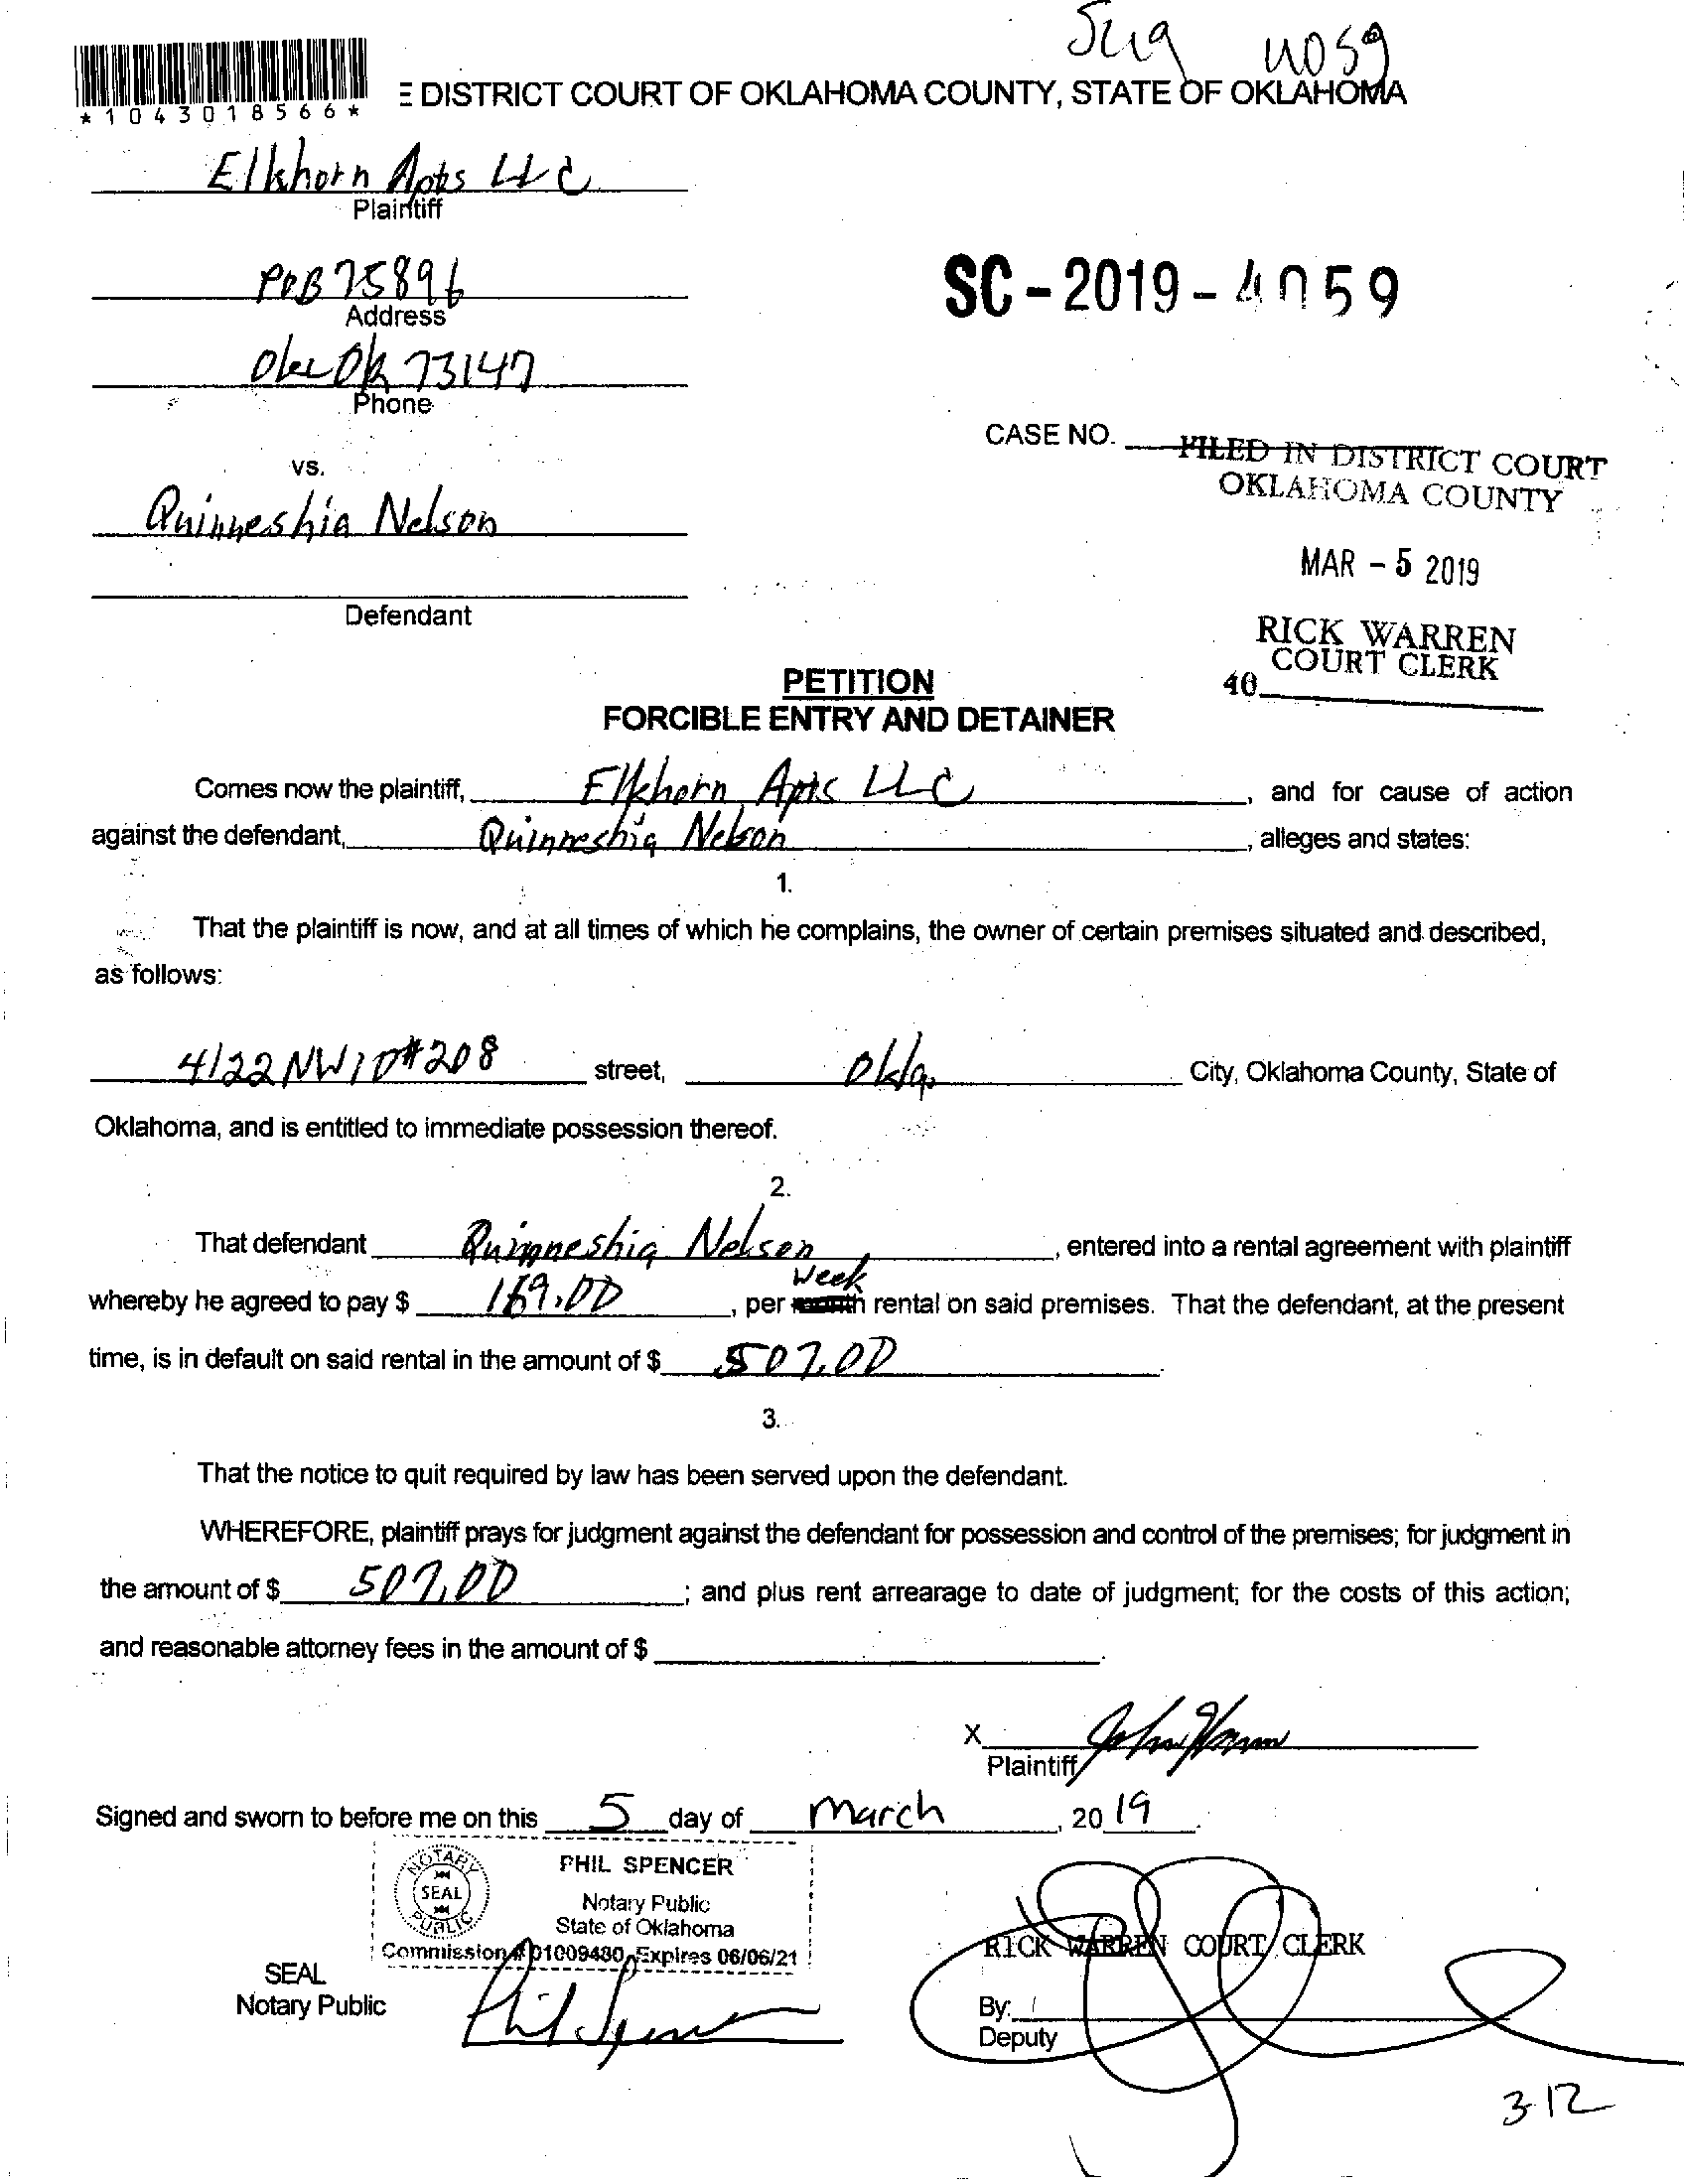 Sc19 4059
*1043018566*
E DISTRICT COURT OF OKLAHOMA COUNTY, STATE OF OKLAHOMA
Elkhorn Apts LLC
Plaintiff
POB 75896
Address
SC-2019-4059
Okc Ok 73147
Phone
CASE NO.
FILED IN DISTRICT COURT
OKLAHOMA COUNTY
vs.
Quinneshia Nelson
MAR - 5 2019
Defendant
RICK WARREN
COURT CLERK
40
PETITION
FORCIBLE ENTRY AND DETAINER
Comes now the plaintiff, Elkhorn Apts LLC, and for cause of action
against the defendant, Quinneshia Nelson, alleges and states:
1.
That the plaintiff is now, and at all times of which he complains, the owner of certain premises situated and described,
as follows:
4122 NW 10 #208 street, Okla. City, Oklahoma County, State of
Oklahoma, and is entitled to immediate possession thereof.
2.
That defendant Quinneshia Nelson, entered into a rental agreement with plaintiff
Week
whereby he agreed to pay $ 169.00, per month rental on said premises. That the defendant, at the present
time, is in default on said rental in the amount of $ 507.00.
3.
That the notice to quit required by law has been served upon the defendant.
WHEREFORE, plaintiff prays for judgment against the defendant for possession and control of the premises; for judgment in
the amount of $ 507.00; and plus rent arrearage to date of judgment; for the costs of this action;
and reasonable attorney fees in the amount of $ .
X
Plaintiff
Signed and sworn to before me on this 5 day of March, 20 19.
NOTARY
SEAL
PUBLIC
PHIL SPENCER
Notary Public
State of Oklahoma
Commission # 01009480 Expires 06/06/21
RICK WARREN COURT CLERK
SEAL
Notary Public
Phil Spencer
By:
Deputy
3-12